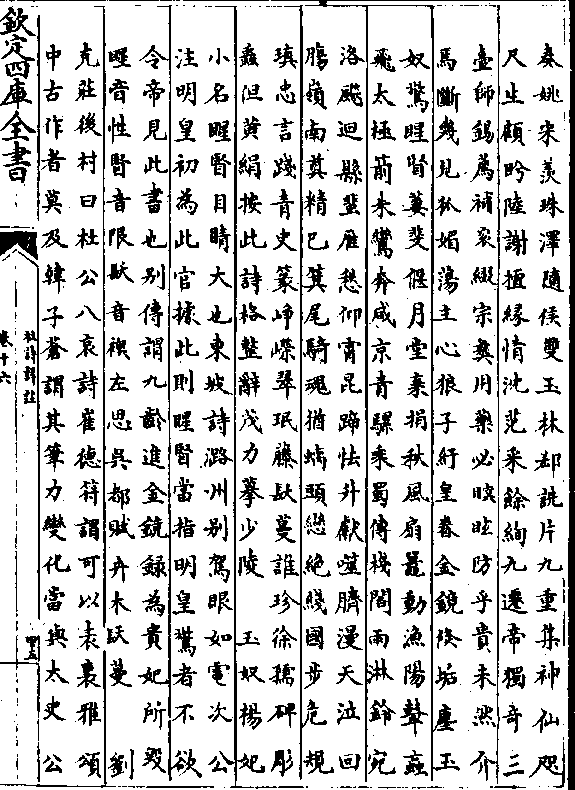 奏姚宋羡珠澤隨侯雙玉林郄詵片九重集神仙咫
尺生顧昑陸謝擅緣情沈范采餘絢九遷帝獨奇三
壺師錫薦補衮綴宗彝用藥必瞑眩防乎貴未然介
馬斷幾見狐媚蕩主心狼子紆皇眷金鏡俟垢塵玉
奴驚睲腎萋斐偃月堂棄捐秋風扇鼉動漁陽鼙蝱
飛太極箭來鸞奔咸京青騾乘蜀傳棧閣雨淋鈴宛
洛颷迴縣蜚雁愁仰霄昆蹄怯升巘噬臍漫天泣回
膓嶺南奠精已箕尾騎魂猶螭頭戀絶綫國步危規
瑱忠言踐青史篆崢嶸翠珉藤趺蔓誰珍徐孺碑彫
蟲但黄絹按此詩格整辭茂力摹少陵 玉奴楊妃
小名睲腎目睛大也東坡詩潞州别駕眼如電次公
注明皇初為此官據此則睲腎當指明皇驚者不欲
令帝見此書也别傳謂九齡進金鏡録為貴妃所毁
睲音性腎音限趺音禊左思吳都賦卉木趺蔓 劉
克莊後村曰杜公八哀詩崔德符謂可以表裏雅頌
中古作者莫及韓子蒼謂其筆力變化當與太史公
欽定四庫全書
杜詩詳註
卷十六